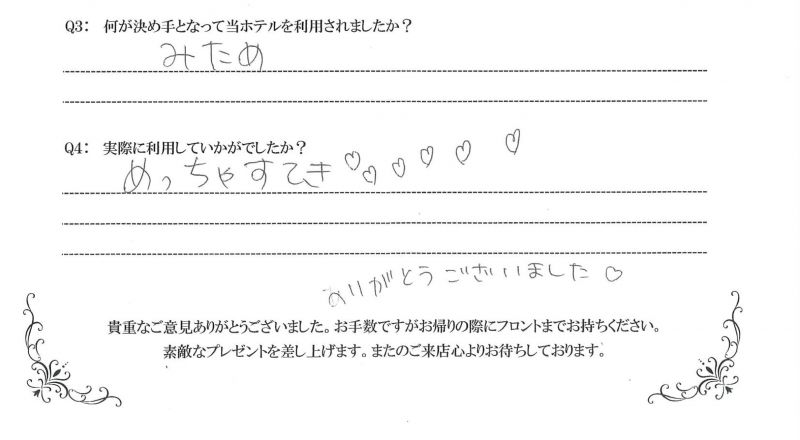 Q3： 何が決め手となって当ホテルを利用されましたか？
みため
Q4： 実際に利用していかがでしたか？
めっちゃすてき♡♡♡♡♡♡
ありがとうございました♡
貴重なご意見ありがとうございました。お手数ですがお帰りの際にフロントまでお持ちください。
素敵なプレゼントを差し上げます。またのご来店心よりお待ちしております。